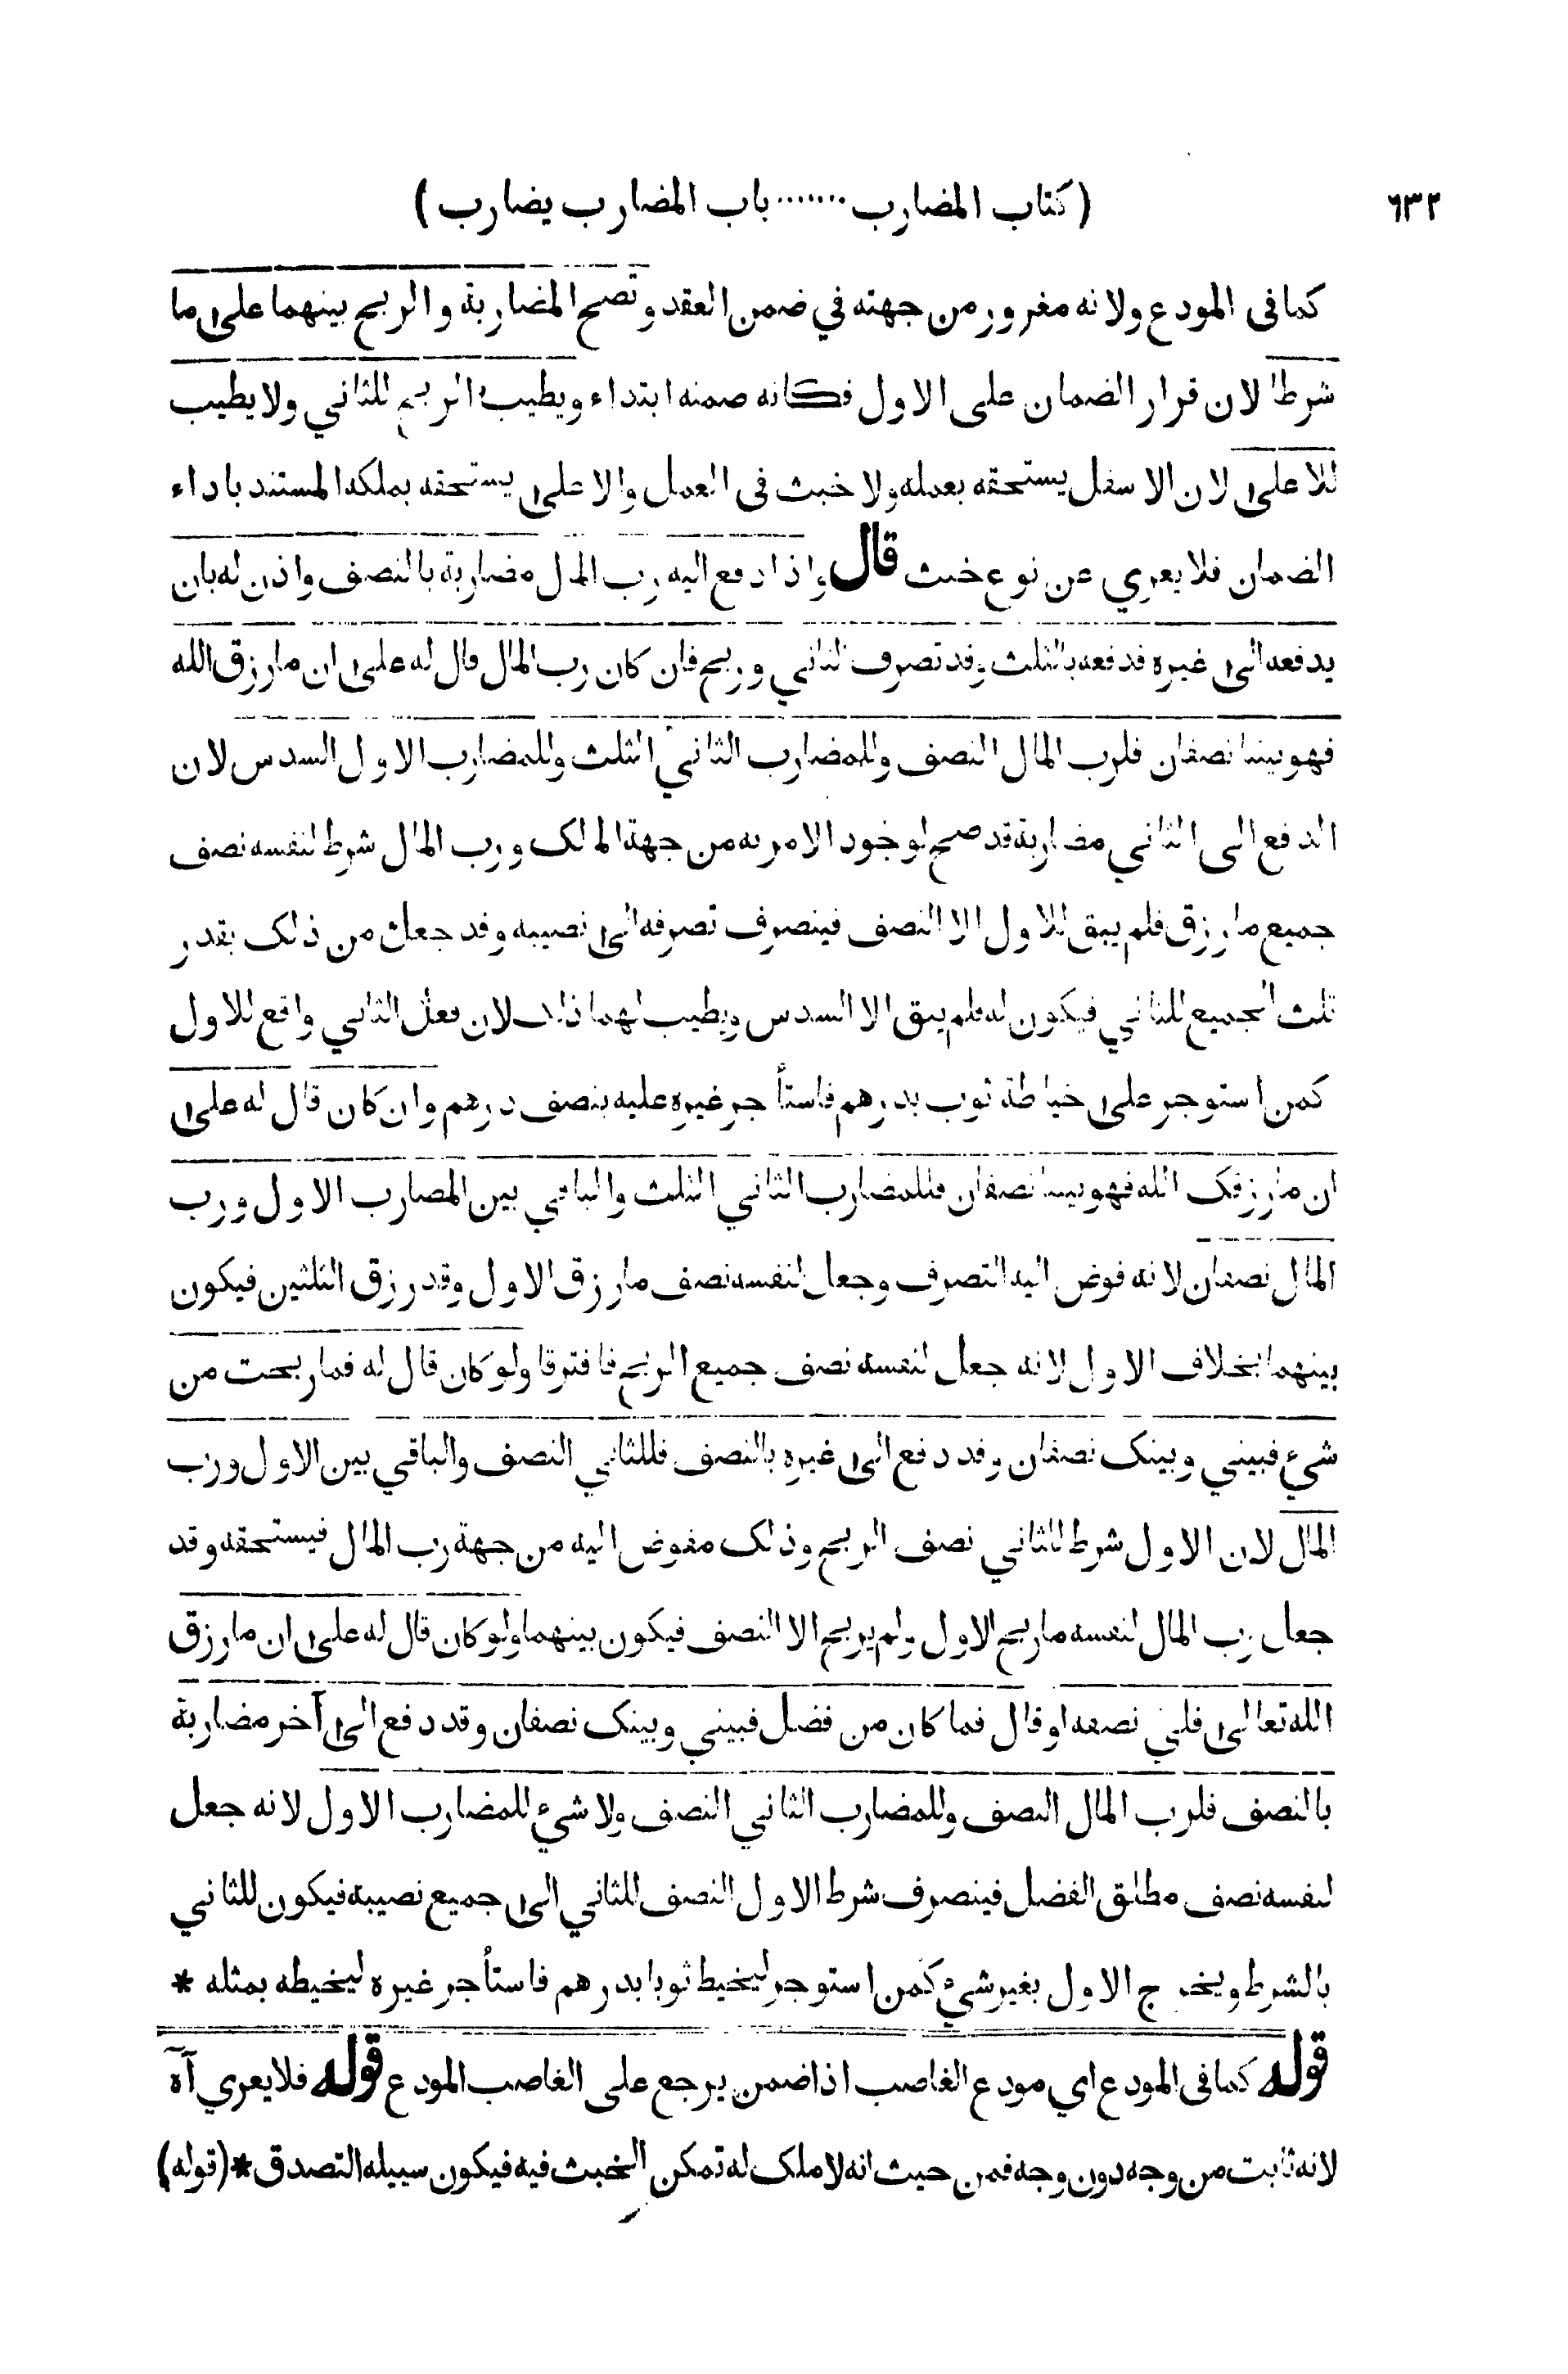 ٦٣٢
( كتاب المضارب ....... باب المضارب يضارب )
كما في المودع ولانه مغرور من جهته في ضمن العقد وتصح المضاربة والربح بينهما على ما
شرطا لان قرار الضمان على الاول فكانه ضمنه ابتداء ويطيب الربح للثاني ولا يطيب
للاعلى لان الاسفل يستحقه بعمله ولا خبث في العمل والاعلى يستحقه بملكه المستند باداء
الضمان فلا يعري عن نوع خبث قال واذا دفع اليه رب المال مضاربة بالنصف واذن له بان
يدفعه الى غيره فدفعه بالثلث وقد تصرف الثاني وربح فان كان رب المال قال له على ان ما رزق الله
فهو بيننا نصفان فلرب المال النصف وللمضارب الثاني الثلث وللمضارب الاول السدس لان
الدفع الى الثاني مضاربة قد صح لوجود الامر به من جهة المالك ورب المال شرط لنفسه نصف
جميع ما رزق فلم يبق للاول الا النصف فينصرف تصرفه الى نصيبه وقد جعل من ذلك بقدر
ثلث الجميع للثاني فيكون له فلم يبق الا السدس ويطيب لهما ذلك لان فعل الثاني واقع للاول
كمن استوجر على خياطة ثوب بدرهم فاستأجر غيره عليه بنصف درهم وان كان قال له على
ان ما رزقك الله فهو بيننا نصفان فللمضارب الثاني الثلث والباقي بين المضارب الاول ورب
المال نصفان لانه فوض اليه التصرف وجعل لنفسه نصف ما رزق الاول وقد رزق الثلثين فيكون
بينهما بخلاف الاول لانه جعل لنفسه نصف جميع الربح فافترقا ولو كان قال له فما ربحت من
شيء فبيني وبينك نصفان وقد دفع الى غيره بالنصف فللثاني النصف والباقي بين الاول ورب
المال لان الاول شرط للثاني نصف الربح وذلك مفوض اليه من جهة رب المال فيستحقه وقد
جعل رب المال لنفسه ما ربح الاول ولم يربح الا النصف فيكون بينهما ولو كان قال له على ان ما رزق
الله تعالى فلي نصفه او قال فما كان من فضل فبيني وبينك نصفان وقد دفع الى آخر مضاربة
بالنصف فلرب المال النصف وللمضارب الثاني النصف ولا شيء للمضارب الاول لانه جعل
لنفسه نصف مطلق الفضل فينصرف شرط الاول النصف للثاني الى جميع نصيبه فيكون للثاني
بالشرط ويخرج الاول بغير شيء كمن استوجر ليخيط ثوبا بدرهم فاستأجر غيره ليخيطه بمثله *
قوله كما في المودع اي مودع الغاصب اذا ضمن يرجع على الغاصب المودع قوله فلا يعري آه
لانه ثابت من وجه دون وجه فمن حيث انه لا ملك له تمكن الخبث فيه فيكون سبيله التصدق * (قوله)